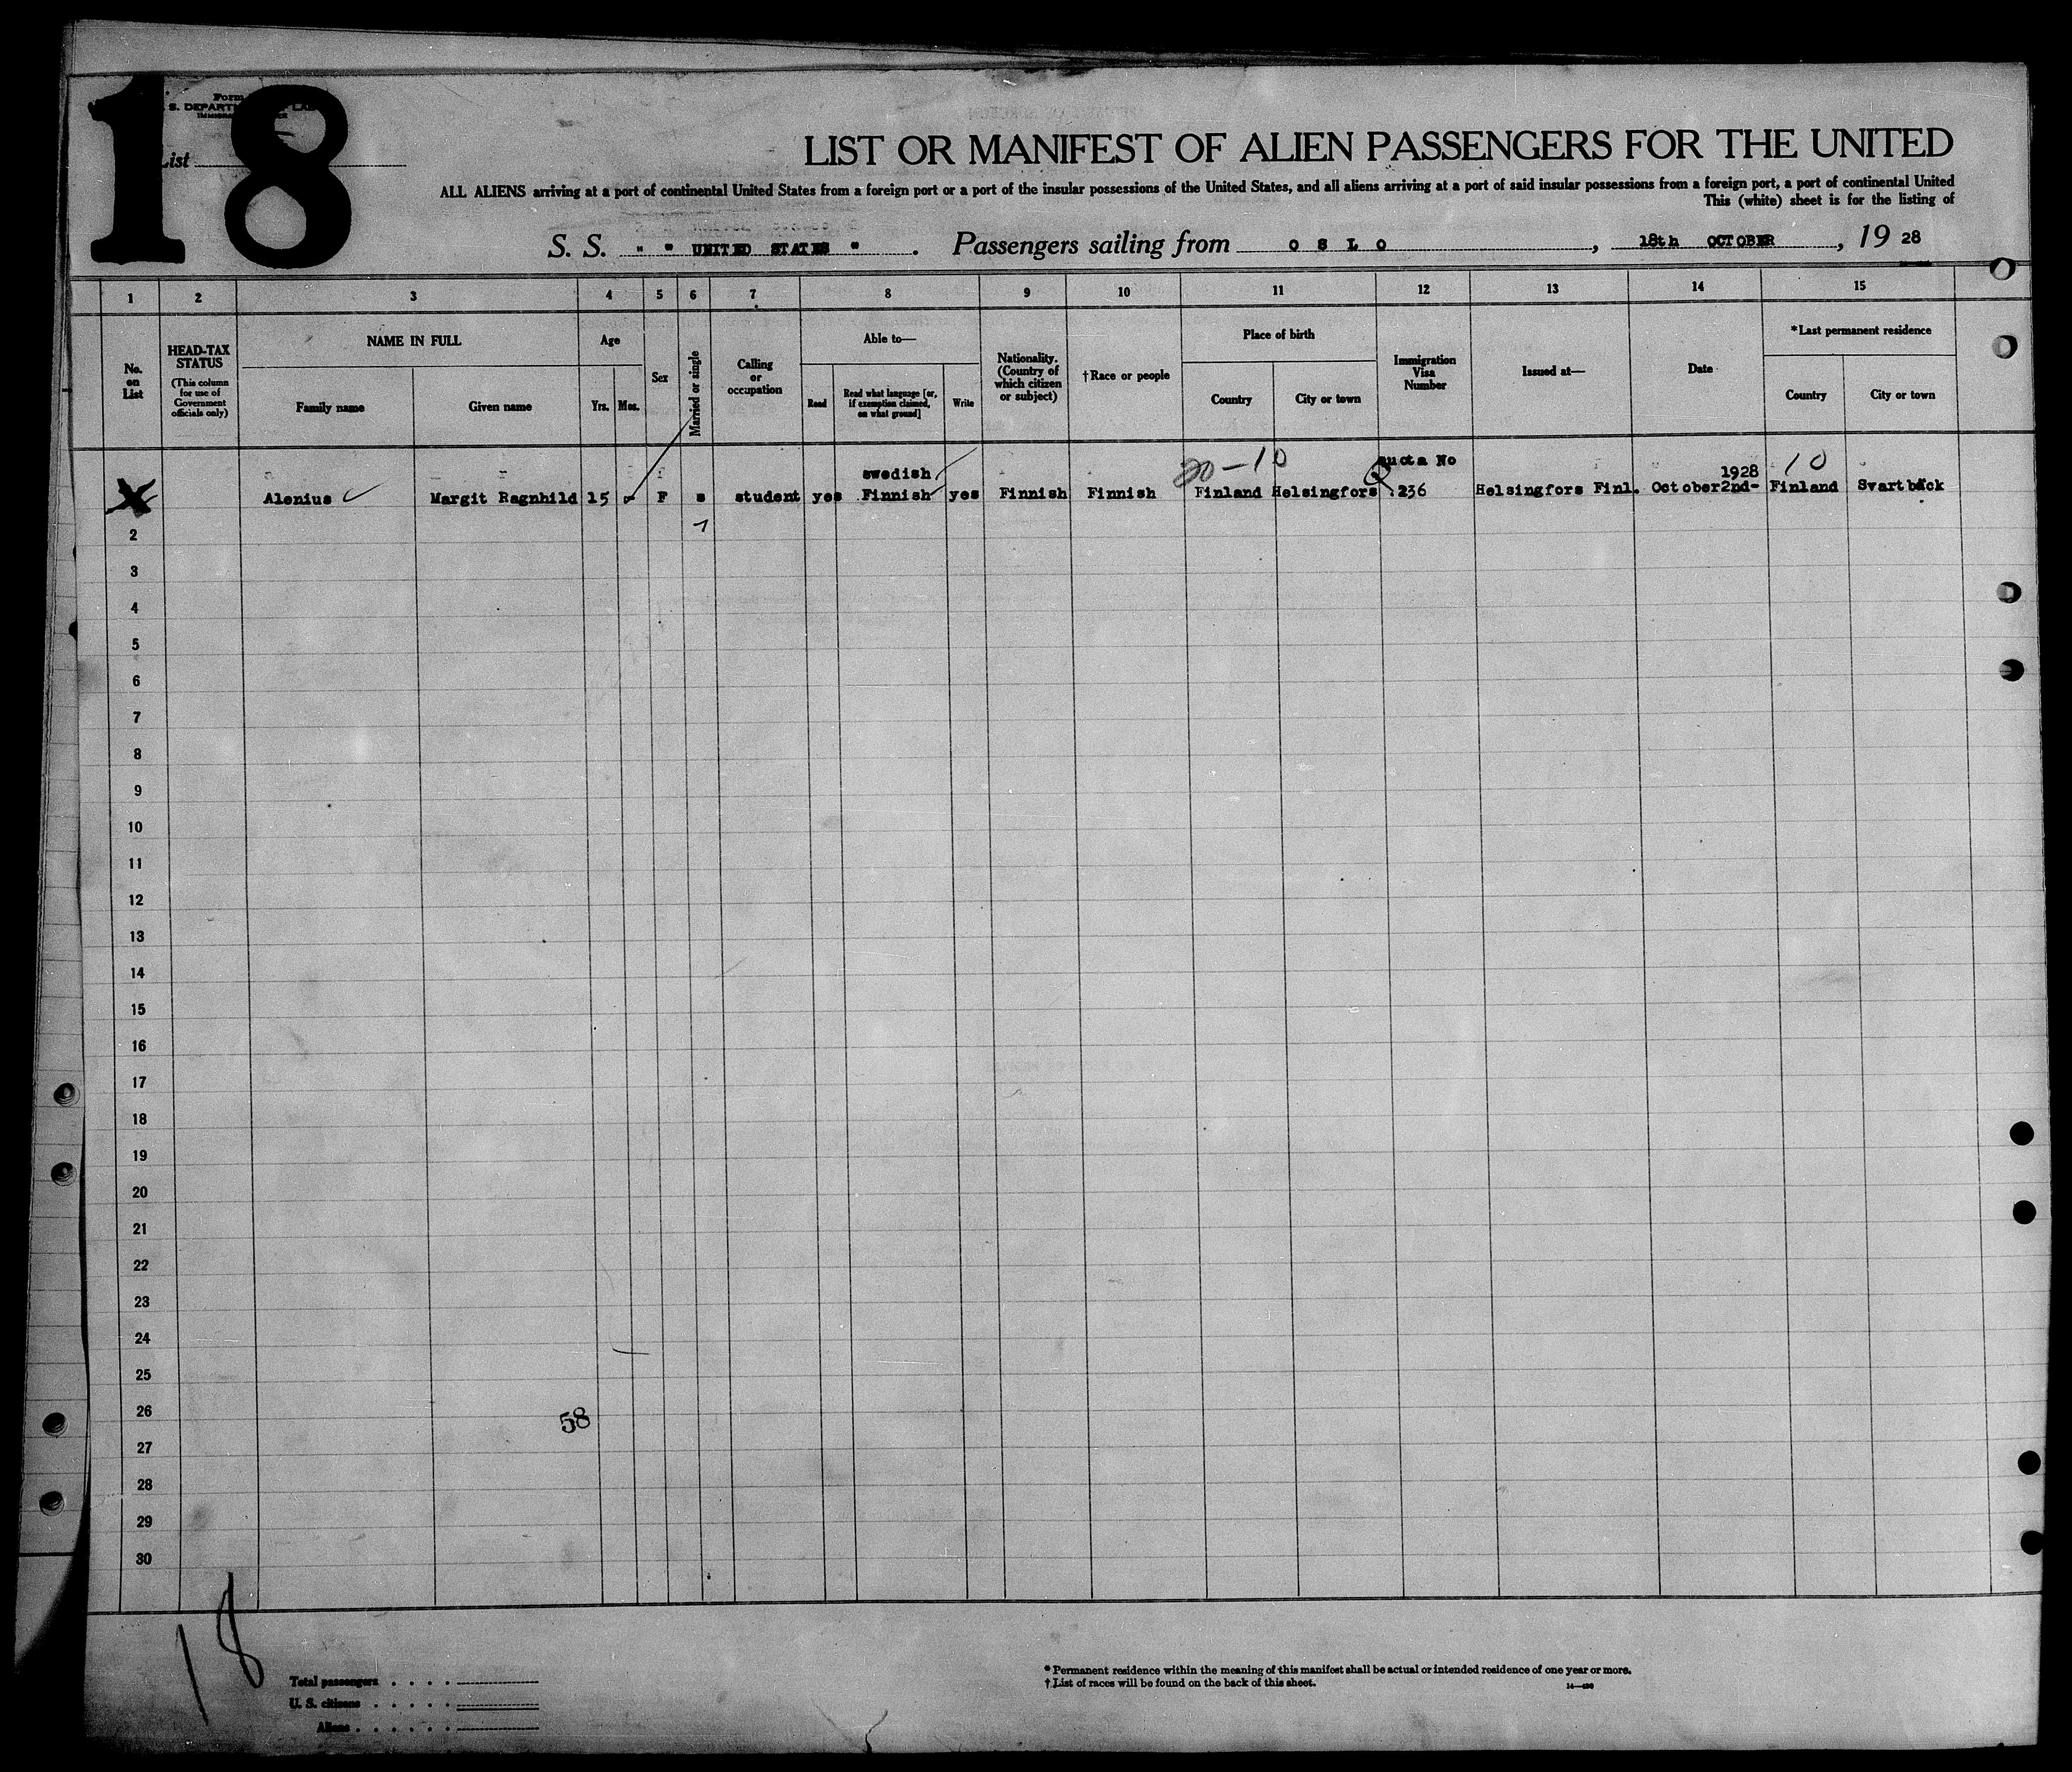 18
Form
S. DEPART
List
LIST OR MANIFEST OF ALIEN PASSENGERS FOR THE UNITED
ALL ALIENS arriving at a port of continental United States from a foreign port or a port of the insular possessions of the United States, and all aliens arriving at a port of said insular possessions from a foreign port, a port of continental United
This (white) sheet is for the listing of
S. S. " " UNITED STATES " . Passengers sailing from O S L O , 18th OCTOBER , 19 28
1 2 3 4 5 6 7 8 9 10 11 12 13 14 15
No. on List
HEAD-TAX STATUS (This column for use of Government officials only)
NAME IN FULL
Family name
Given name
Age
Yrs.
Mos.
Sex
Married or single
Calling or occupation
Able to—
Read
Read what language [or, if exemption claimed, on what ground]
Write
Nationality. (Country of which citizen or subject)
†Race or people
Place of birth
Country
City or town
Immigration Visa Number
Issued at—
Date
*Last permanent residence
Country
City or town
20-10
quota No
1928
10
swedish
Alenius Margit Ragnhild 15 - F s student yes Finnish yes Finnish Finnish Finland Helsingfors .236 Helsingfors Finl. October 2nd- Finland Svartback
2
3
4
5
6
7
8
9
10
11
12
13
14
15
16
17
18
19
20
21
22
23
24
25
26
58
27
28
29
30
18
Total passengers . . . .
U. S. citizens . . . . .
Aliens . . . . . .
* Permanent residence within the meaning of this manifest shall be actual or intended residence of one year or more.
† List of races will be found on the back of this sheet.